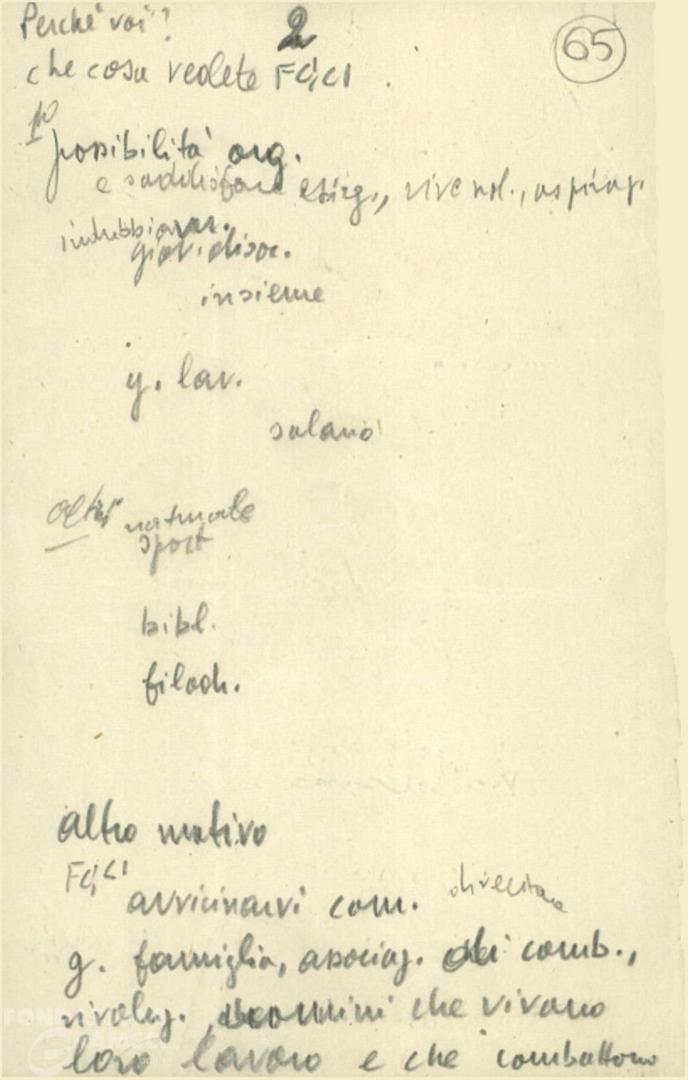 Perche' voi? 2 65
che cosa vedete FGCI.
1º
possibilità org.
e soddisfare esig., rivend., aspiraz.
indubbiam.
giov. disoc.
insieme
g. lav.
salario
altri naturale
sport
bibl.
filodr.
altro motivo
FGCI avvicinarvi com. diventare
g. famiglia, associaz. di comb.,
rivoluz., uomini che vivono
loro lavoro e che combattono